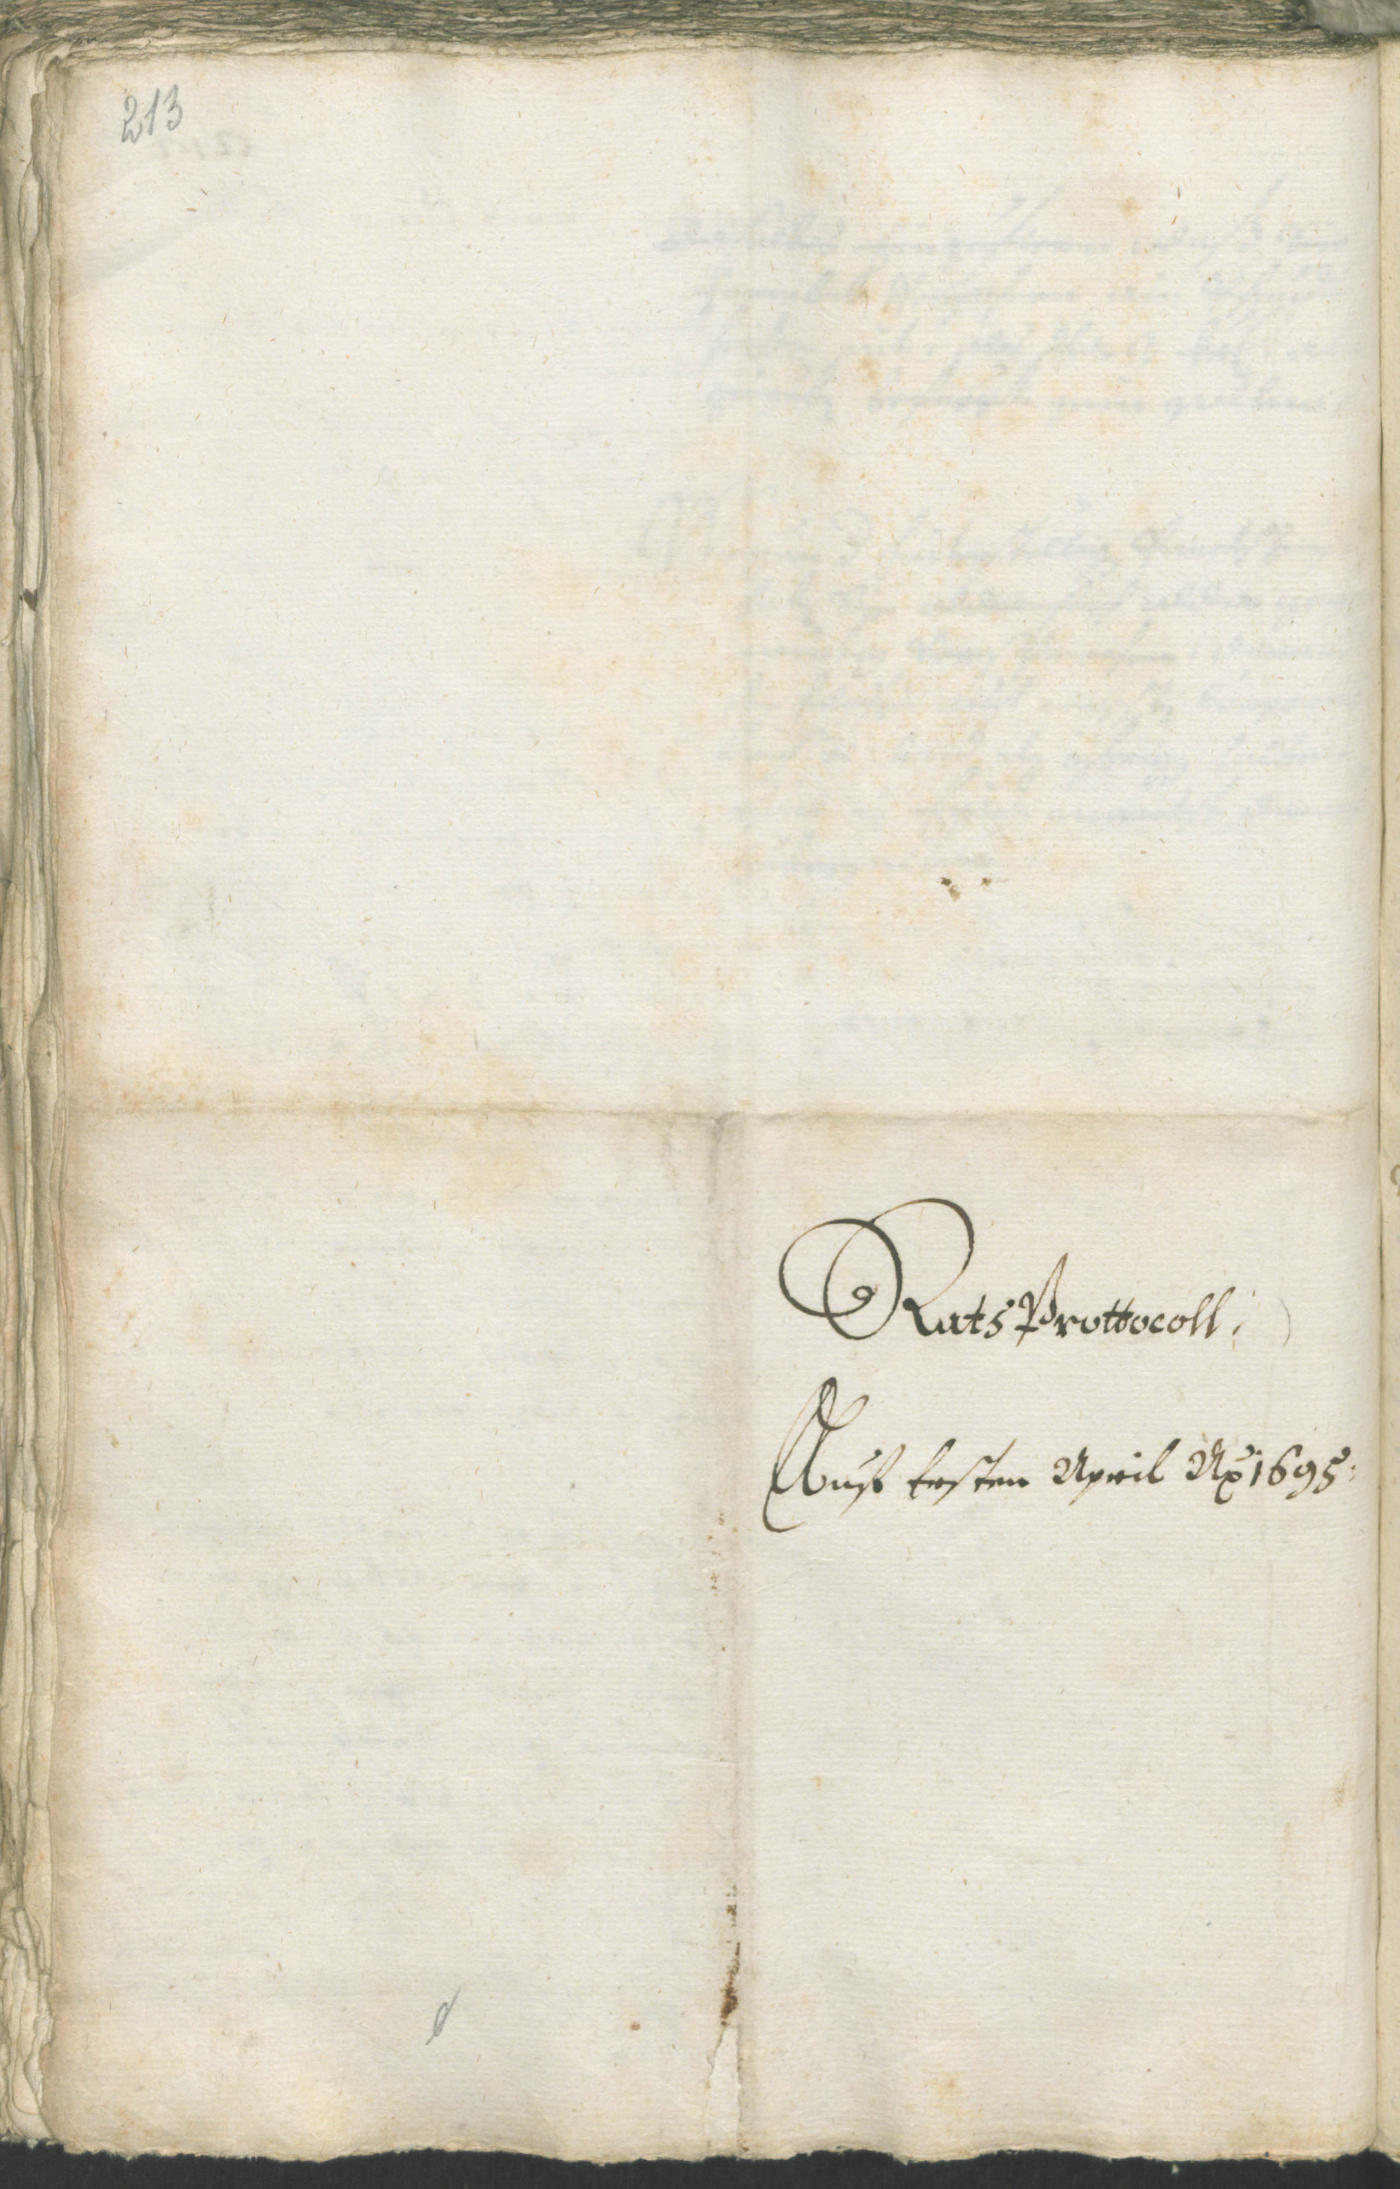 213
Rats Prottocoll:
Auß Ersten April Ao 1695: